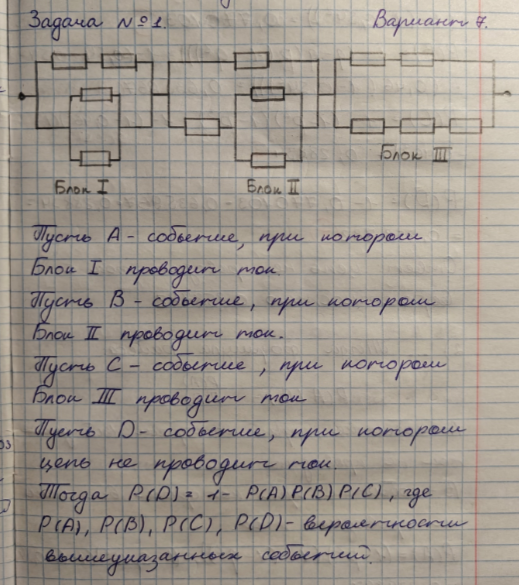 Задача №1. Вариант 7.
Блок I Блок II Блок III
Пусть A - событие, при котором
Блок I проводит ток
Пусть B - событие, при котором
Блок II проводит ток.
Пусть C - событие, при котором
Блок III проводит ток
Пусть D - событие, при котором
цепь не проводит ток.
Тогда P(D) = 1 - P(A)P(B)P(C), где
P(A), P(B), P(C), P(D) - вероятности
вышеуказанных событий.